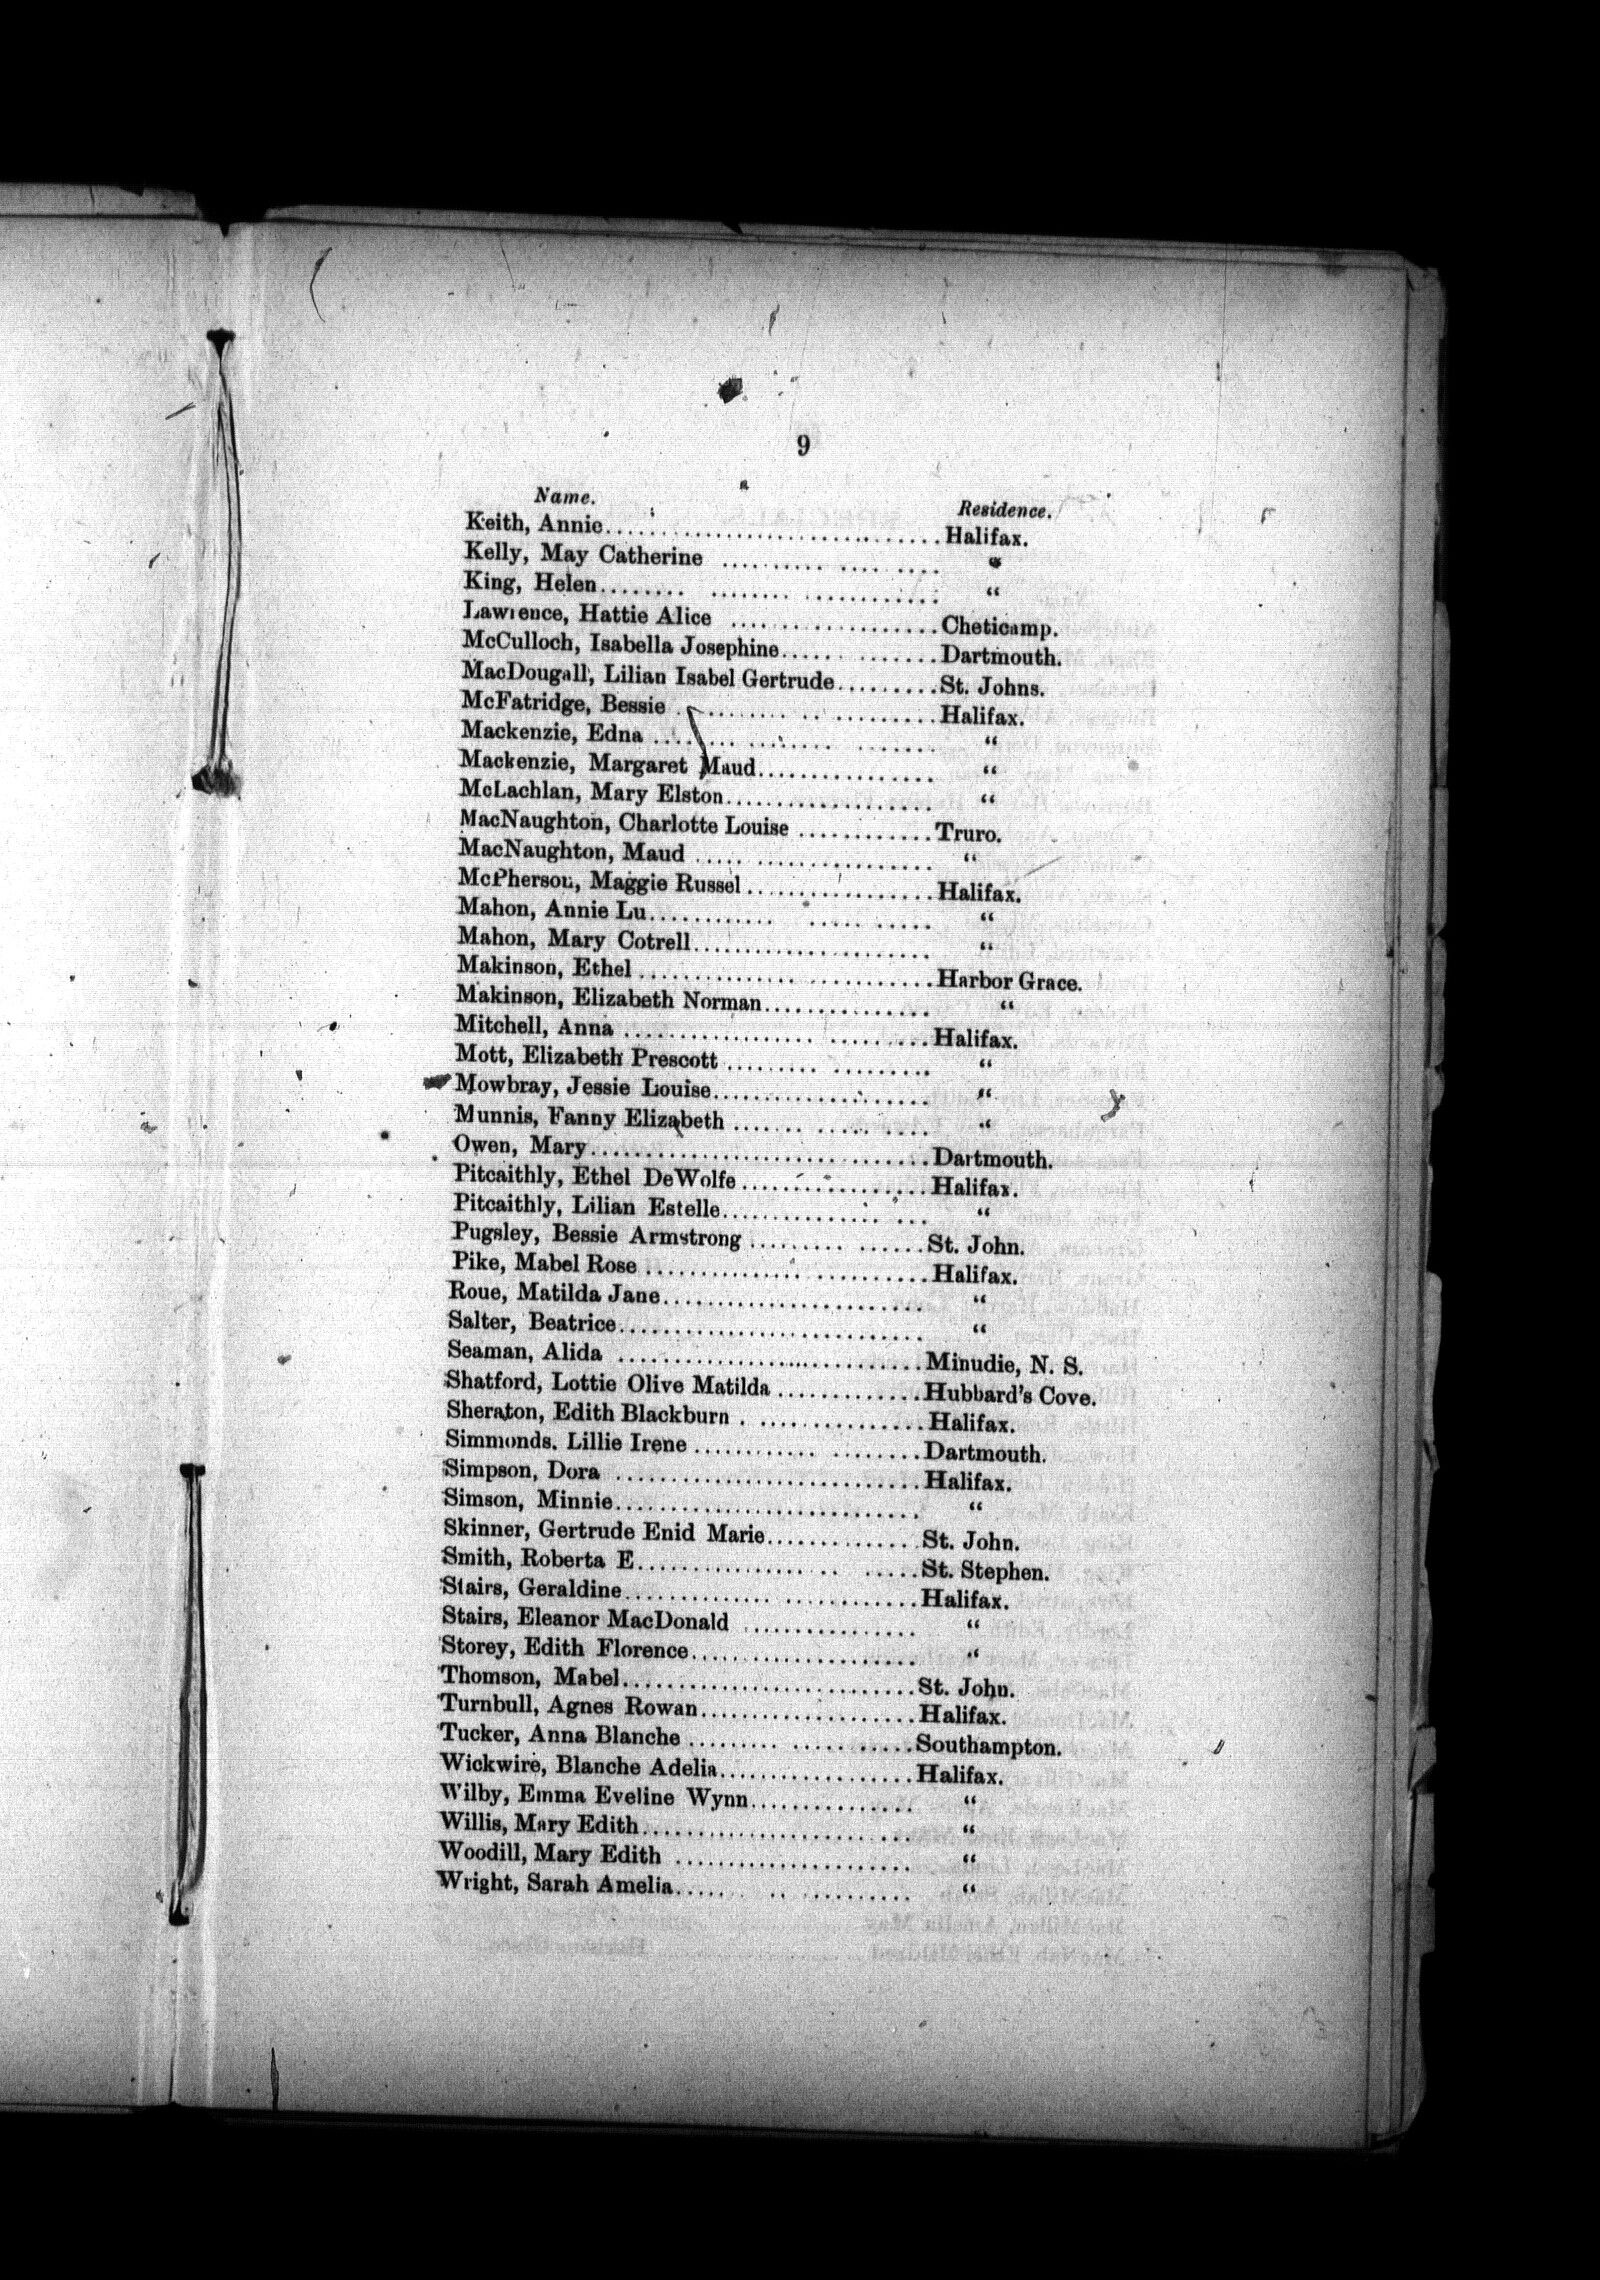 9
Name. Residence.
Keith, Annie.................................Halifax.
Kelly, May Catherine .................... “
King, Helen............................... “
Lawrence, Hattie Alice ..................Cheticamp.
McCulloch, Isabella Josephine............Dartmouth.
MacDougall, Lilian Isabel Gertrude.........St. Johns.
McFatridge, Bessie .....................Halifax.
Mackenzie, Edna ....................... “
Mackenzie, Margaret Maud................ “
McLachlan, Mary Elston................... “
MacNaughton, Charlotte Louise ............Truro.
MacNaughton, Maud ..................... “
McPherson, Maggie Russel ................Halifax.
Mahon, Annie Lu....................... “
Mahon, Mary Cotrell...................... “
Makinson, Ethel ..........................Harbor Grace.
Makinson, Elizabeth Norman............... “
Mitchell, Anna ..........................Halifax.
Mott, Elizabeth Prescott ................. “
Mowbray, Jessie Louise.................... “
Munnis, Fanny Elizabeth ................. “
Owen, Mary...............................Dartmouth.
Pitcaithly, Ethel DeWolfe .................Halifax.
Pitcaithly, Lilian Estelle.................. “
Pugsley, Bessie Armstrong ...............St. John.
Pike, Mabel Rose ........................Halifax.
Roue, Matilda Jane........................ “
Salter, Beatrice............................ “
Seaman, Alida ............................Minudie, N. S.
Shatford, Lottie Olive Matilda .............Hubbard's Cove.
Sheraton, Edith Blackburn . ...............Halifax.
Simmonds. Lillie Irene ...................Dartmouth.
Simpson, Dora ...........................Halifax.
Simson, Minnie............................ “
Skinner, Gertrude Enid Marie..............St. John.
Smith, Roberta E......................St. Stephen.
Stairs, Geraldine.........................Halifax.
Stairs, Eleanor MacDonald ............... “
Storey, Edith Florence..................... “
Thomson, Mabel..........................St. John.
Turnbull, Agnes Rowan...................Halifax.
Tucker, Anna Blanche ...................Southampton.
Wickwire, Blanche Adelia.................Halifax.
Wilby, Emma Eveline Wynn............... “
Willis, Mary Edith........................ “
Woodill, Mary Edith ..................... “
Wright, Sarah Amelia.................. “